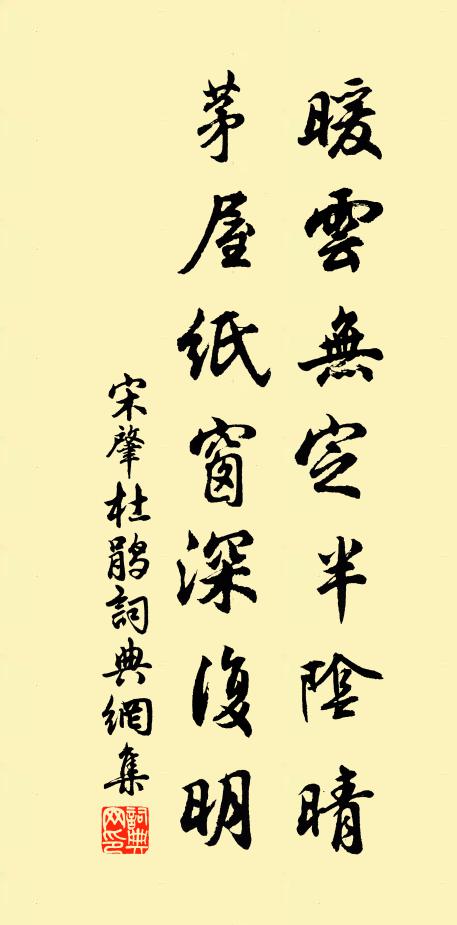 暖雲無定半陰晴
茅屋紙窗深復明
宋肇杜鵑詞典網集
詞典網印